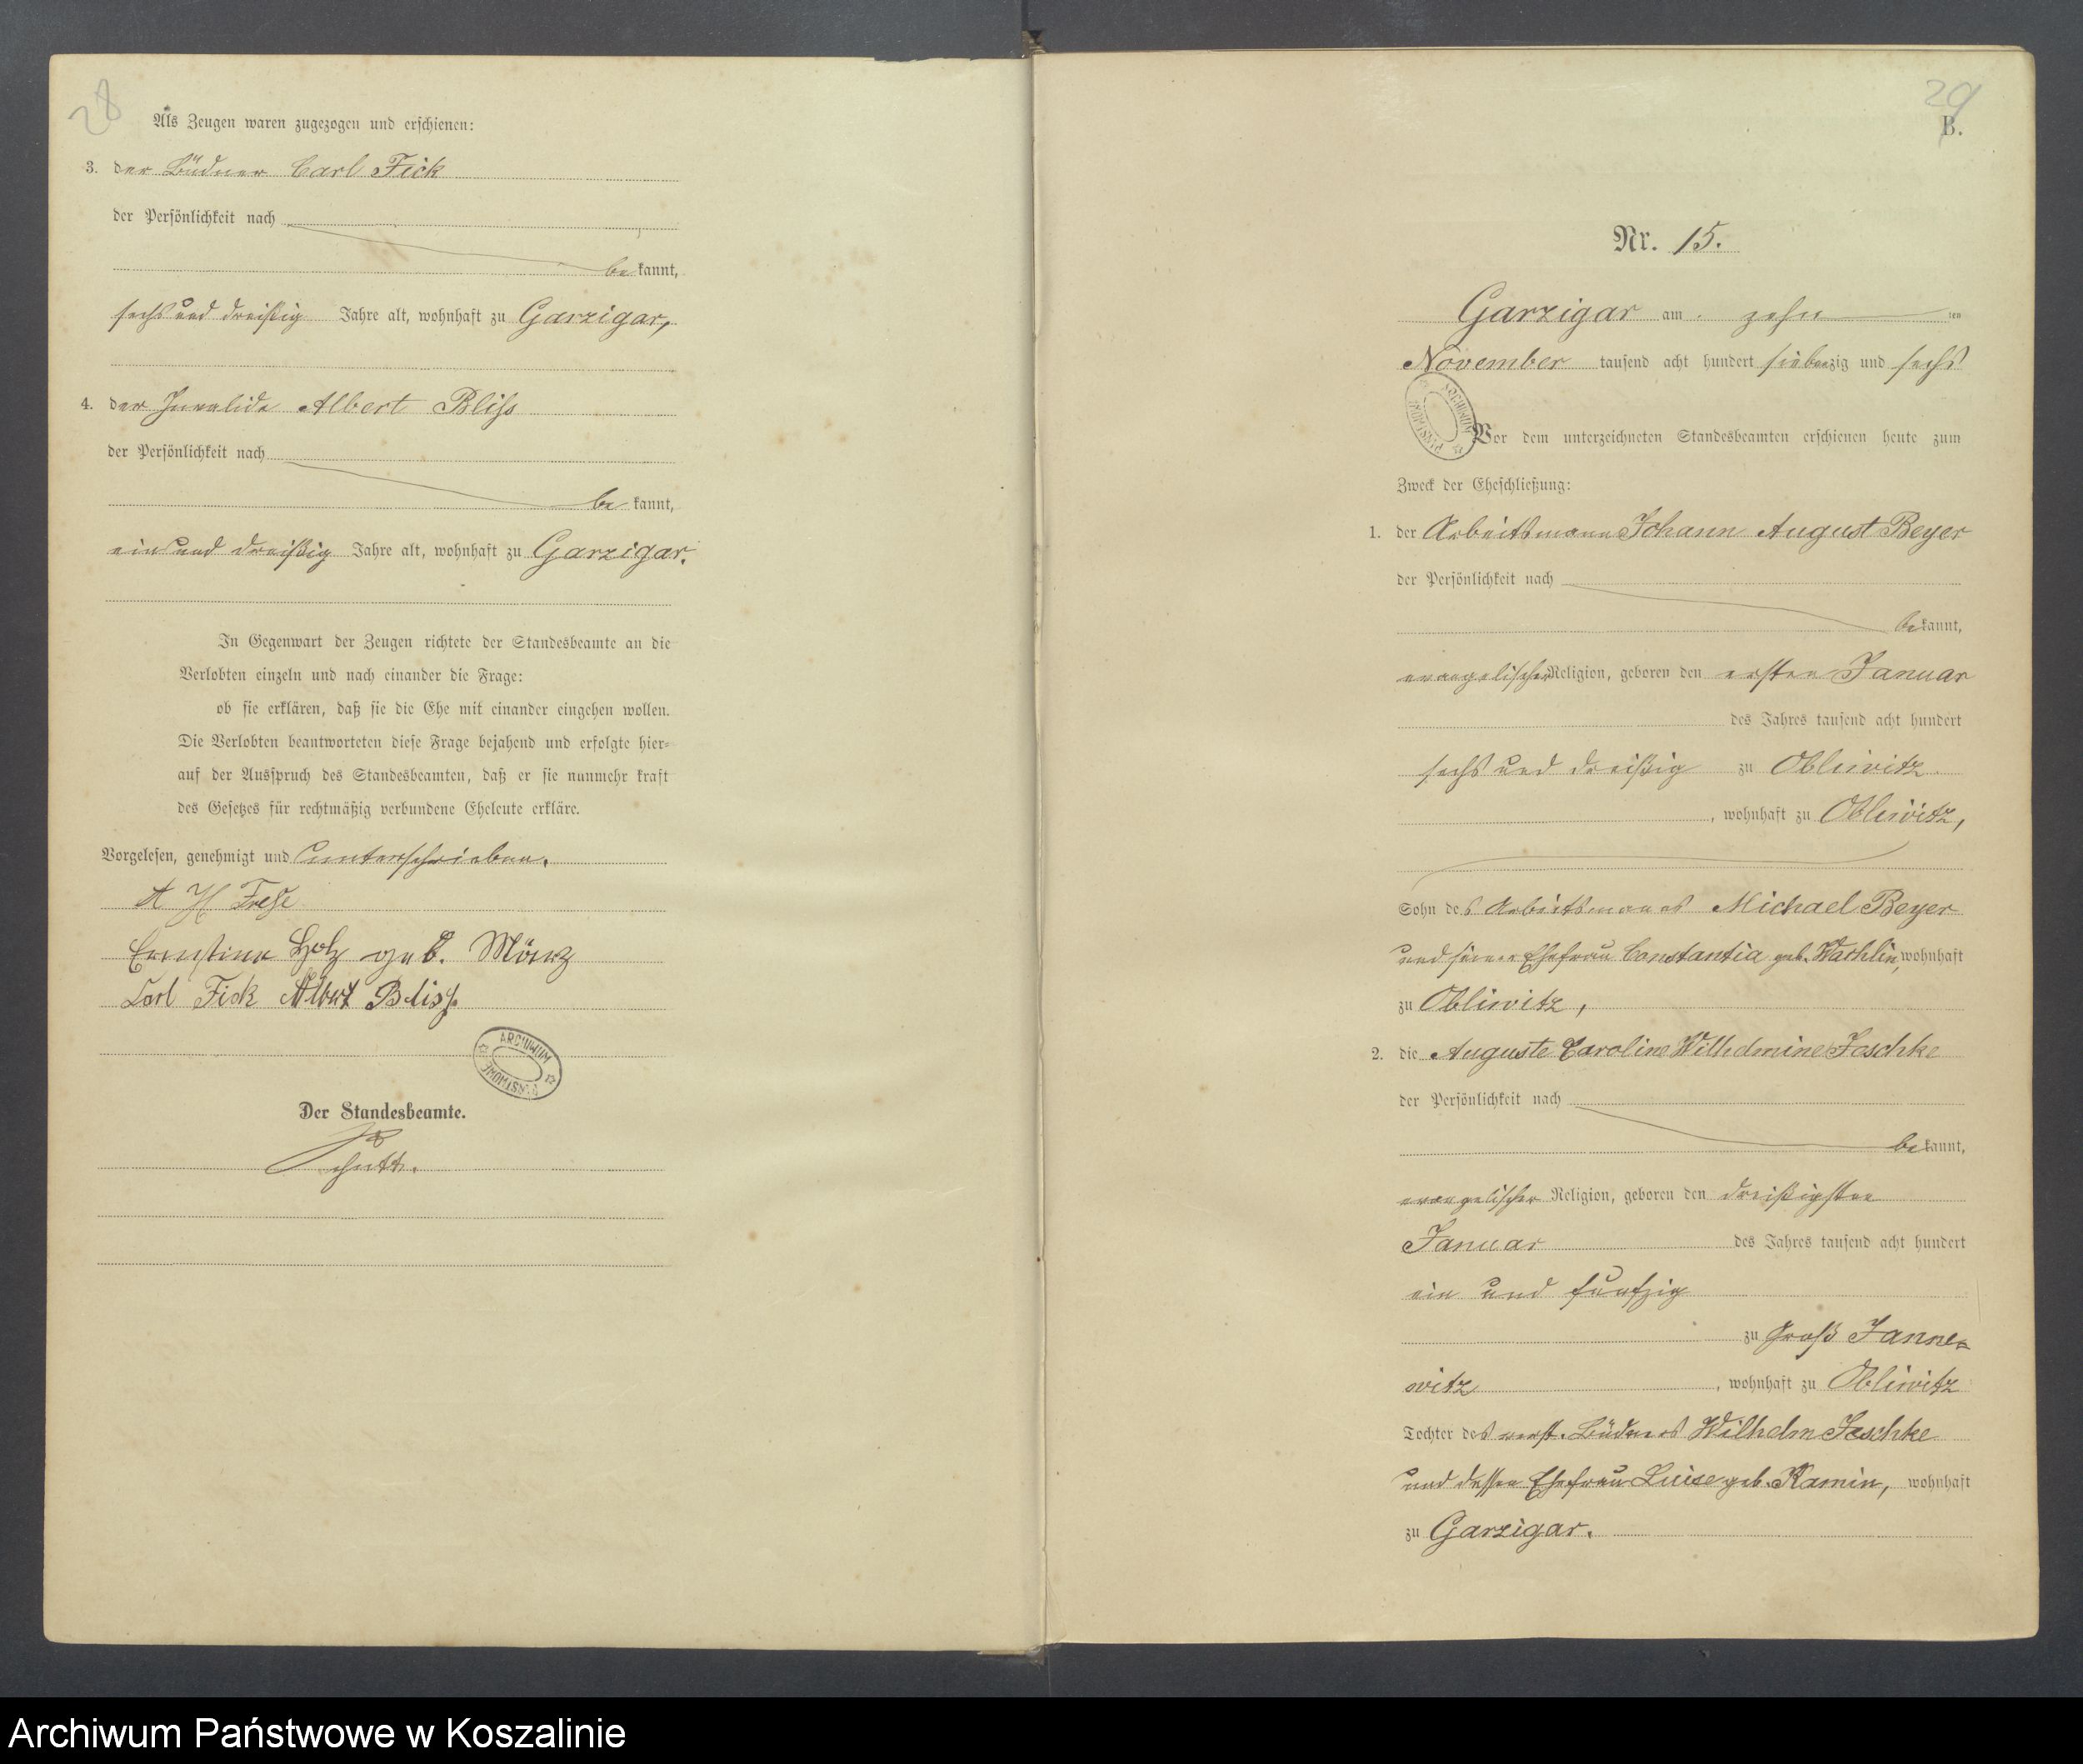 28
Als Zeugen waren zugezogen und erschienen:
3. der Büdner Carl Fick
der Persönlichkeit nach
be kannt,
sechs und dreißig Jahre alt, wohnhaft zu Garzigar,
4. der Invalide Albert Bliß
der Persönlichkeit nach
be kannt,
ein und dreißig Jahre alt, wohnhaft zu Garzigar.
In Gegenwart der Zeugen richtete der Standesbeamte an die
Verlobten einzeln und nach einander die Frage:
ob sie erklären, daß sie die Ehe mit einander eingehen wollen.
Die Verlobten beantworteten diese Frage bejahend und erfolgte hier-
auf der Ausspruch des Standesbeamten, daß er sie nunmehr kraft
des Gesetzes für rechtmäßig verbundene Eheleute erkläre.
Vorgelesen, genehmigt und unterschrieben.
A H Frese
Ernstine Holz geb.
Carl Fick Albert Bliß
ARCHIWUM PAŃSTWOWE
Der Standesbeamte.
29
B.
Nr. 15.
Garzigar am zehn ten
November tausend acht hundert siebenzig und sechs
ARCHIWUM PAŃSTWOWE
Vor dem unterzeichneten Standesbeamten erschienen heute zum
Zweck der Eheschließung:
1. der Arbeitsmann Johann August Beyer
der Persönlichkeit nach
be kannt,
evangelischer Religion, geboren den ersten Januar
des Jahres tausend acht hundert
sechs und dreißig zu Obliwitz
, wohnhaft zu Obliwitz,
Sohn des Arbeitsmannes Michael Beyer
und seiner Ehefrau Constantia geb. Wachlin, wohnhaft
zu Obliwitz,
2. die Auguste Caroline Wilhelmine Jeschke
der Persönlichkeit nach
be kannt,
evangelischer Religion, geboren den dreißigsten
Januar des Jahres tausend acht hundert
ein und funfzig
zu Groß Janne-
witz , wohnhaft zu Obliwitz
Tochter des verst. Büdners Wilhelm Jeschke
und dessen Ehefrau Luise geb. Kamin, wohnhaft
zu Garzigar.
Archiwum Państwowe w Koszalinie